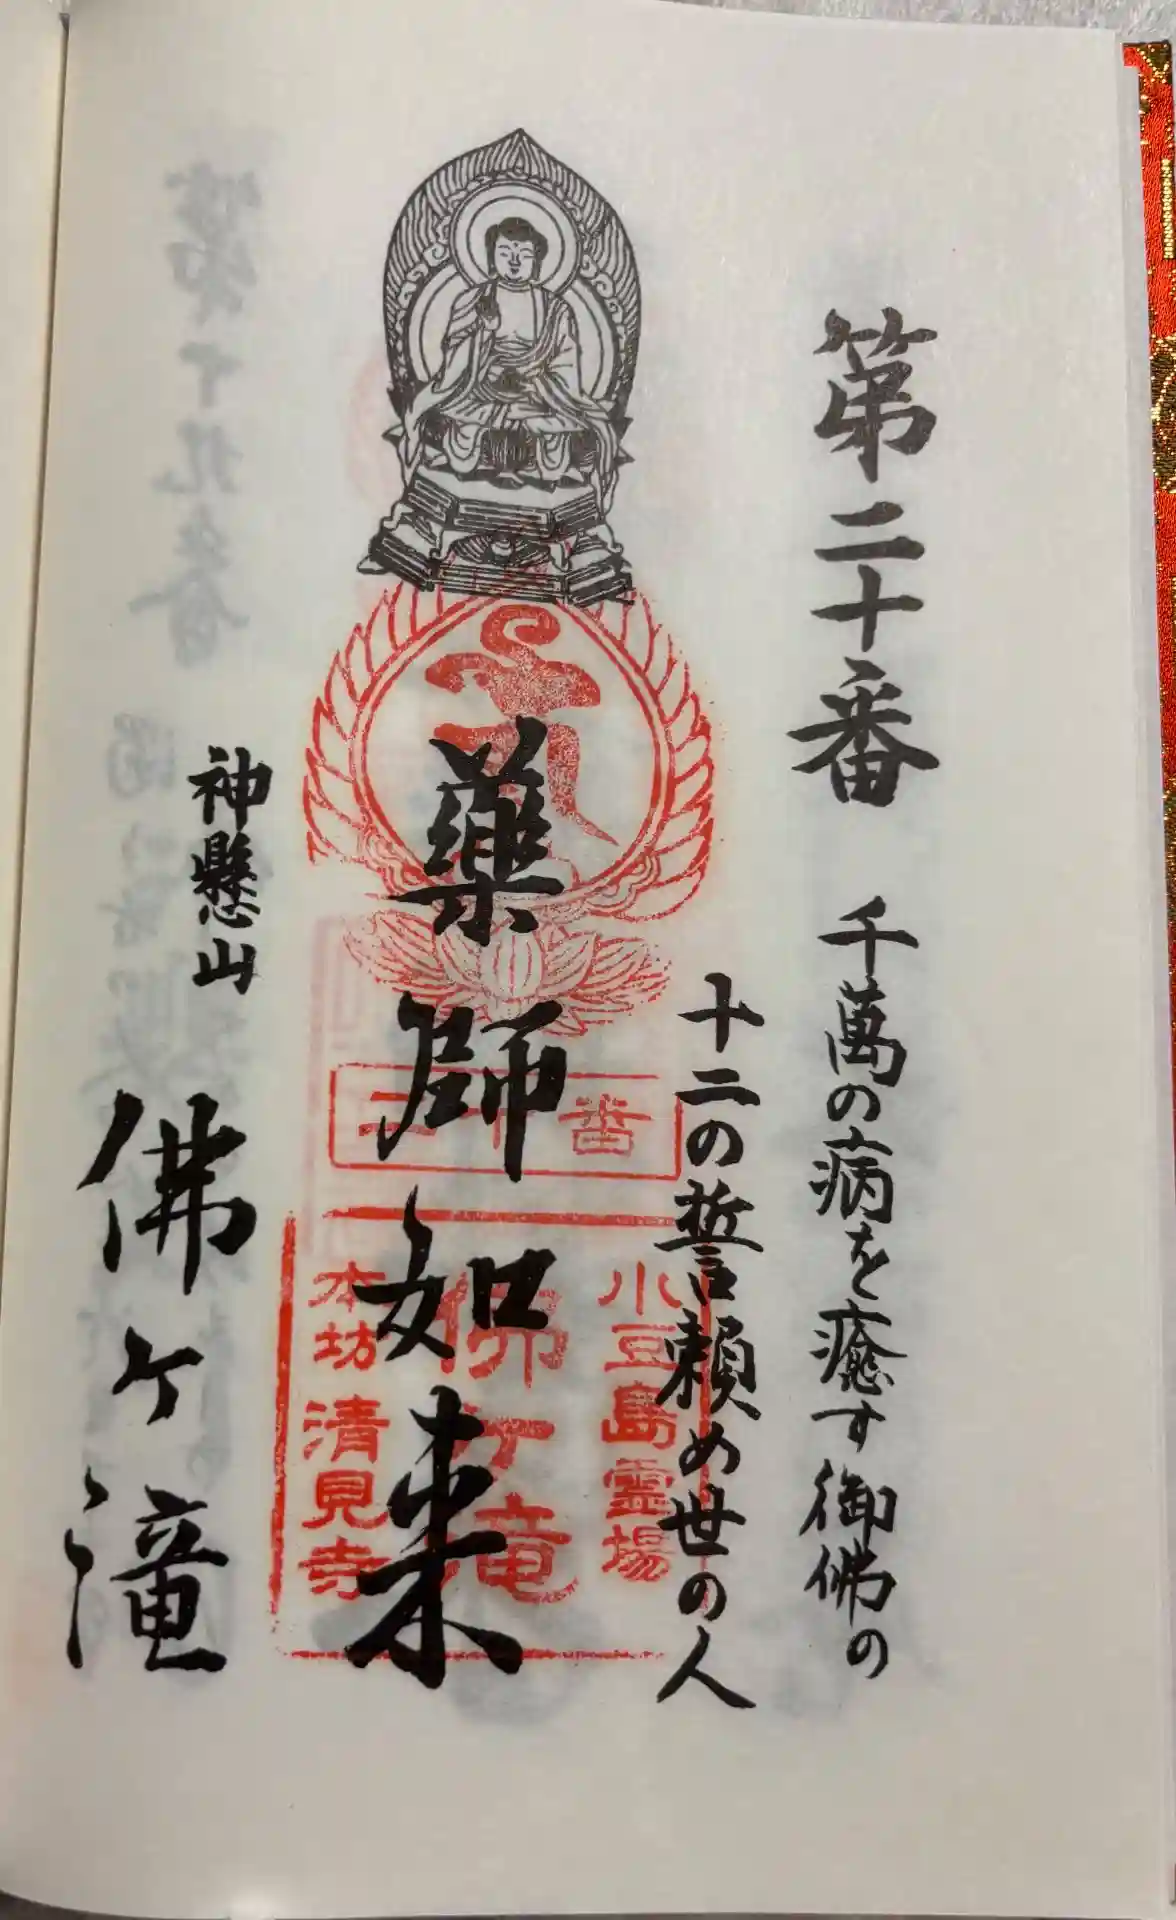 第二十番
千萬の病を癒す御佛の
十二の誓頼め世の人
薬師如来
神懸山
佛ヶ瀧
二十番
小豆島霊場
佛ヶ竜
本坊 清見寺